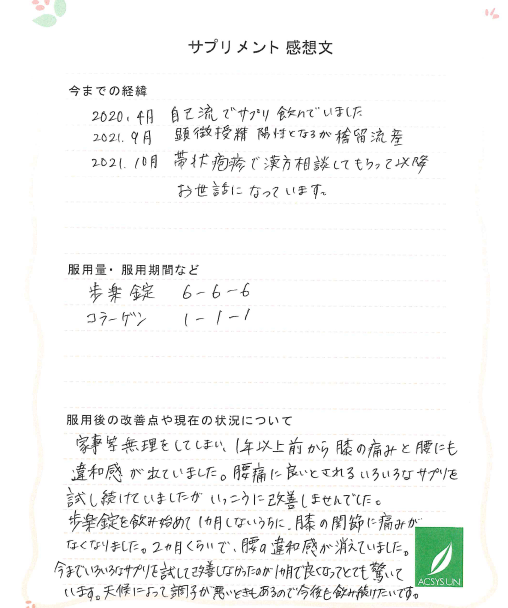 サプリメント 感想文
今までの経緯
2020.4月 自己流でサプリ飲んでいました
2021.9月 顕微授精 陽性となるが稽留流産
2021.10月 帯状疱疹で漢方相談してもらって以降
お世話になっています。
服用量・服用期間など
歩楽錠 6-6-6
コラーゲン 1-1-1
服用後の改善点や現在の状況について
家事等無理をしてしまい、1年以上前から膝の痛みと腰にも
違和感が出ていました。腰痛に良いとされるいろいろなサプリを
試し続けていましたがいっこうに改善しませんでした。
歩楽錠を飲み始めて1カ月しないうちに、膝の関節に痛みが
なくなりました。2カ月くらいで、腰の違和感が消えていました。
今までいろいろなサプリを試して改善しなかったのが1カ月で良くなってとても驚いて
います。天候によって調子が悪いときもあるので今後も飲み続けたいです。
ACSYSUN